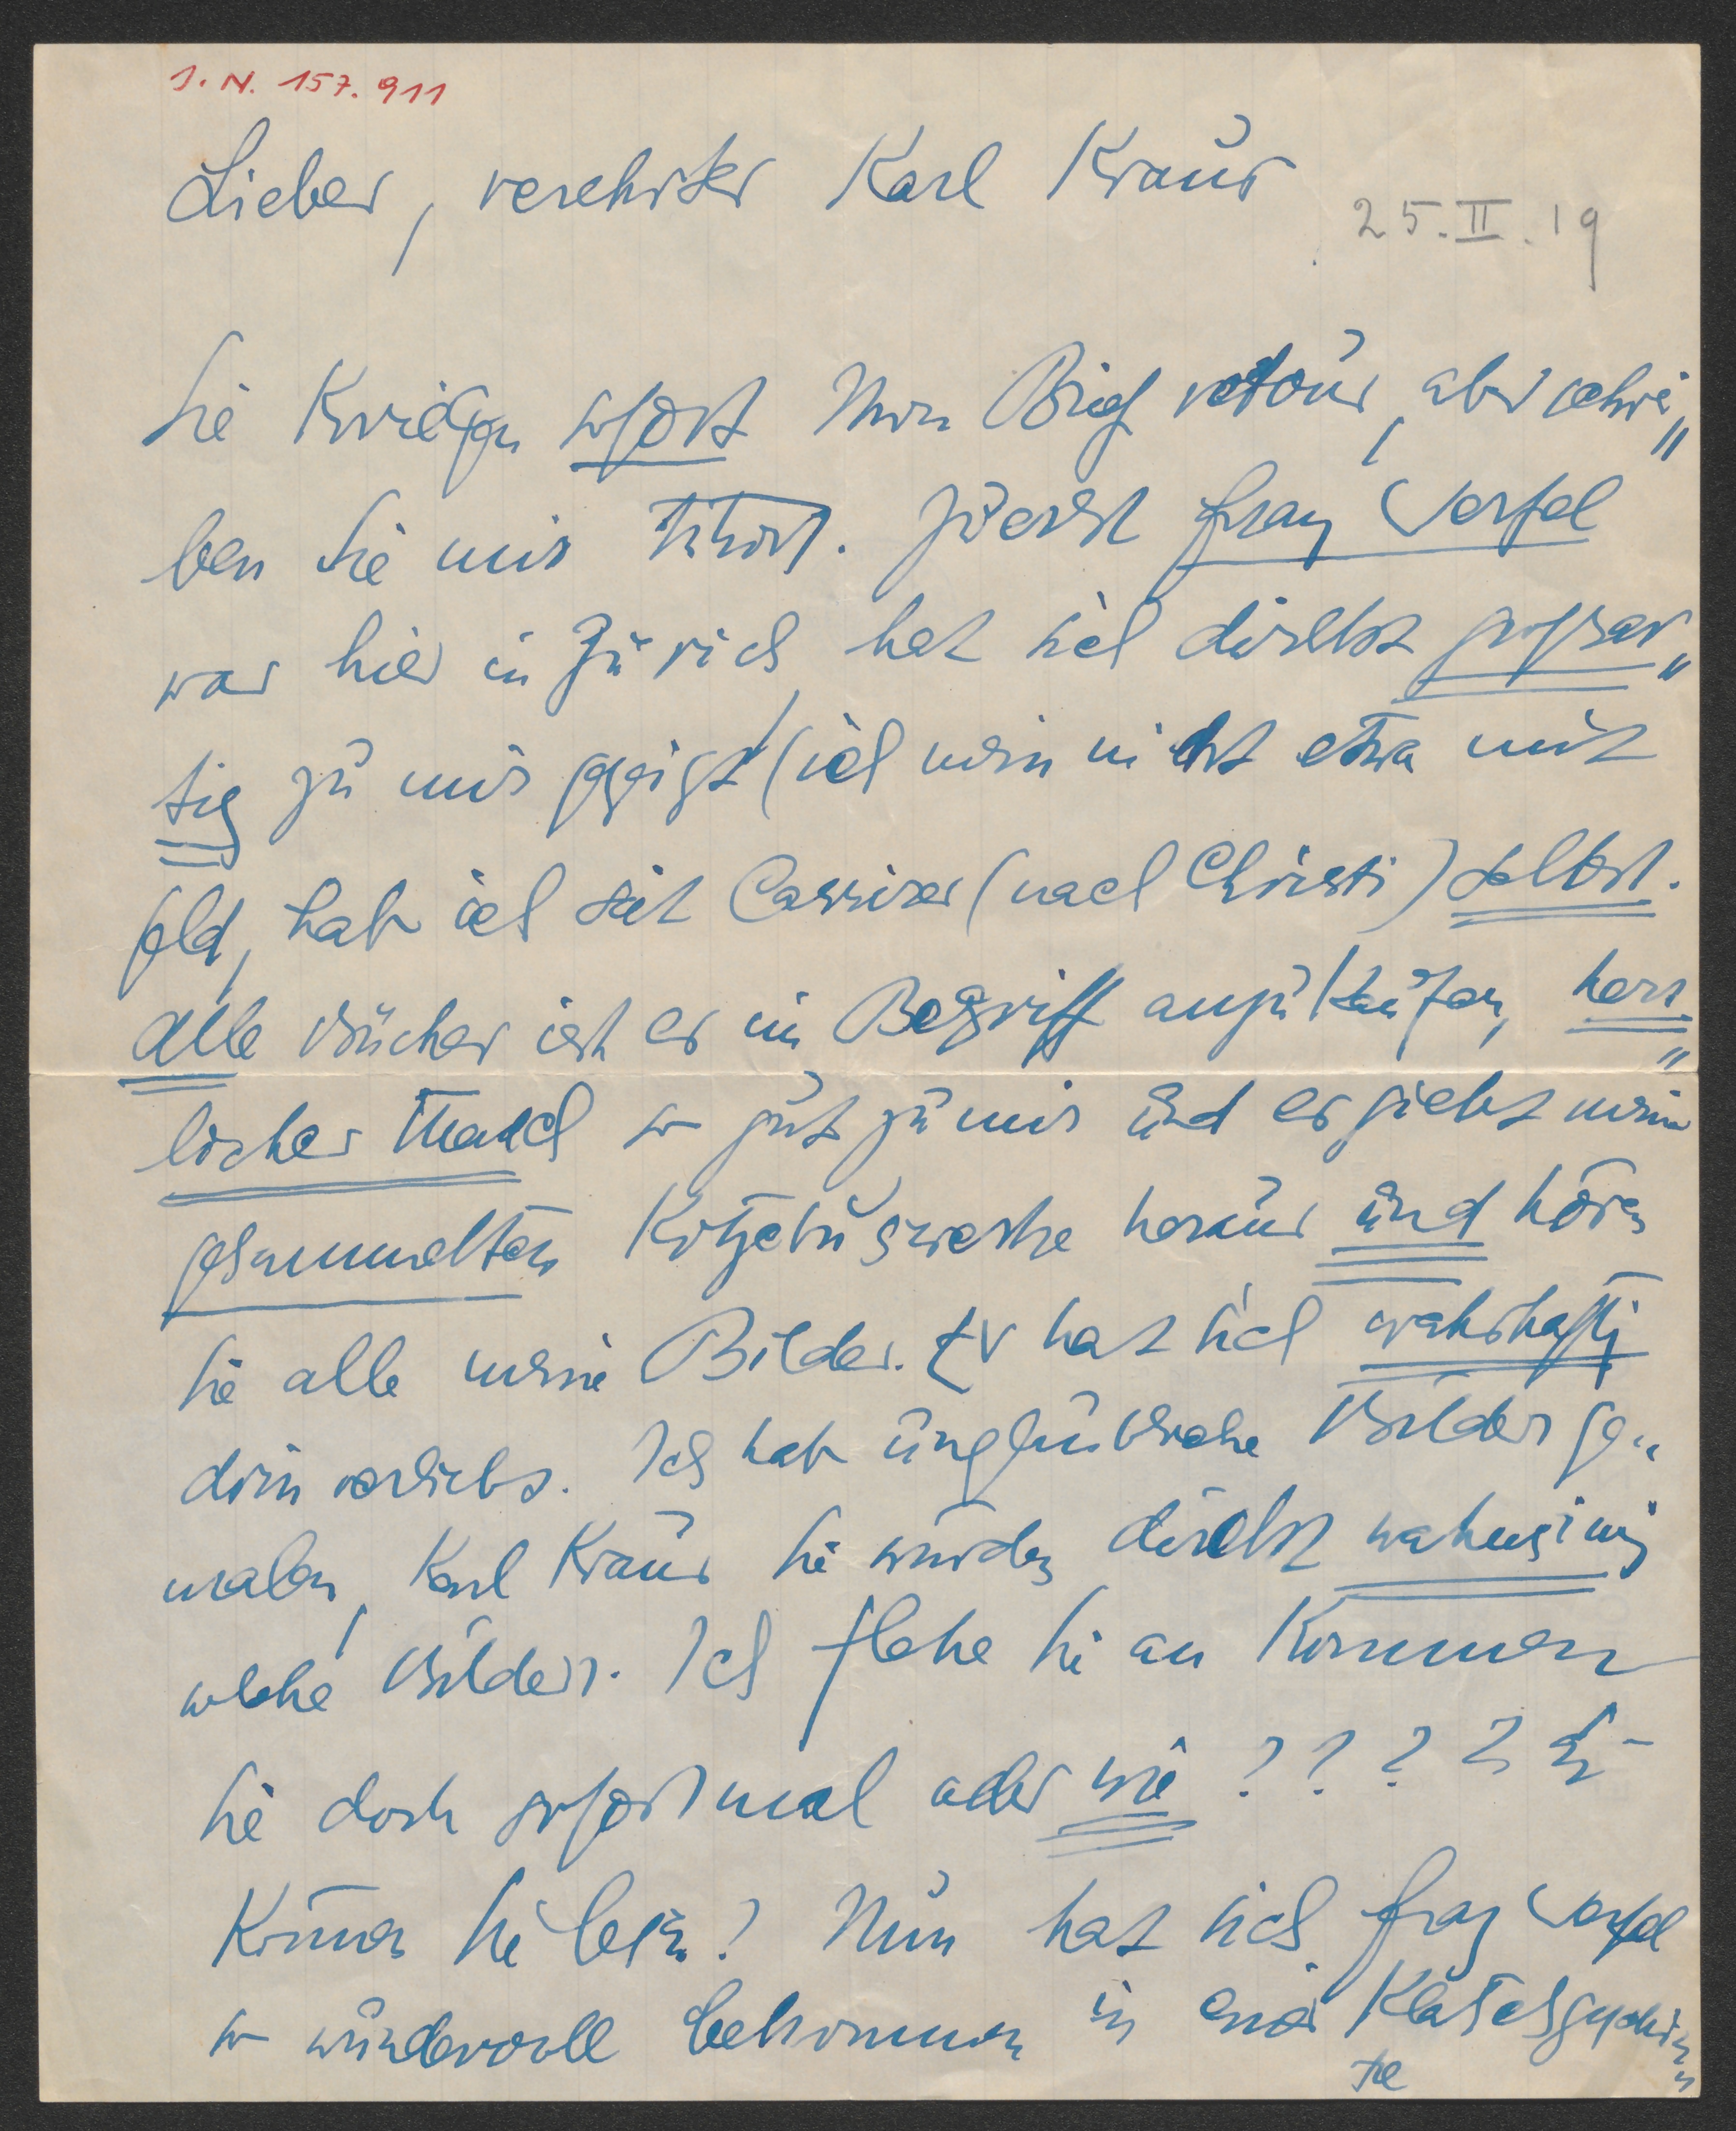 J. N. 157.911
Lieber, verehrter Karl Kraus
25.II.19
Sie kriegen sofort Ihren Brief retour, aber schrei„
ben Sie mir sofort. Zuerst Franz Werfel
war hier in Zürich, hat sich direkt großar„
tig zu mir gezeigt (ich mein nicht etwa mit
Geld, hab ich seit Cassirer (nach Christi) selbst.
Alle Bücher ist er im Begriff anzukaufen, herr„
licher Mensch so gut zu mir und er giebt meine
gesammelten heraus und hören
Sie alle meine Bilder. Er hat sich wahrhaftig
drin verliebt. Ich hab unglaubliche Bilder ge„
malen, Karl Kraus Sie würden direkt wahnsinnig
solche Bilder. Ich flehe Sie an kommen
Sie doch sofort mal oder wie ? ? ? ?
Können Sie lesen? Nun hat sich Franz Werfel
so wundervoll benommen in einer Klatschgeschich„
te